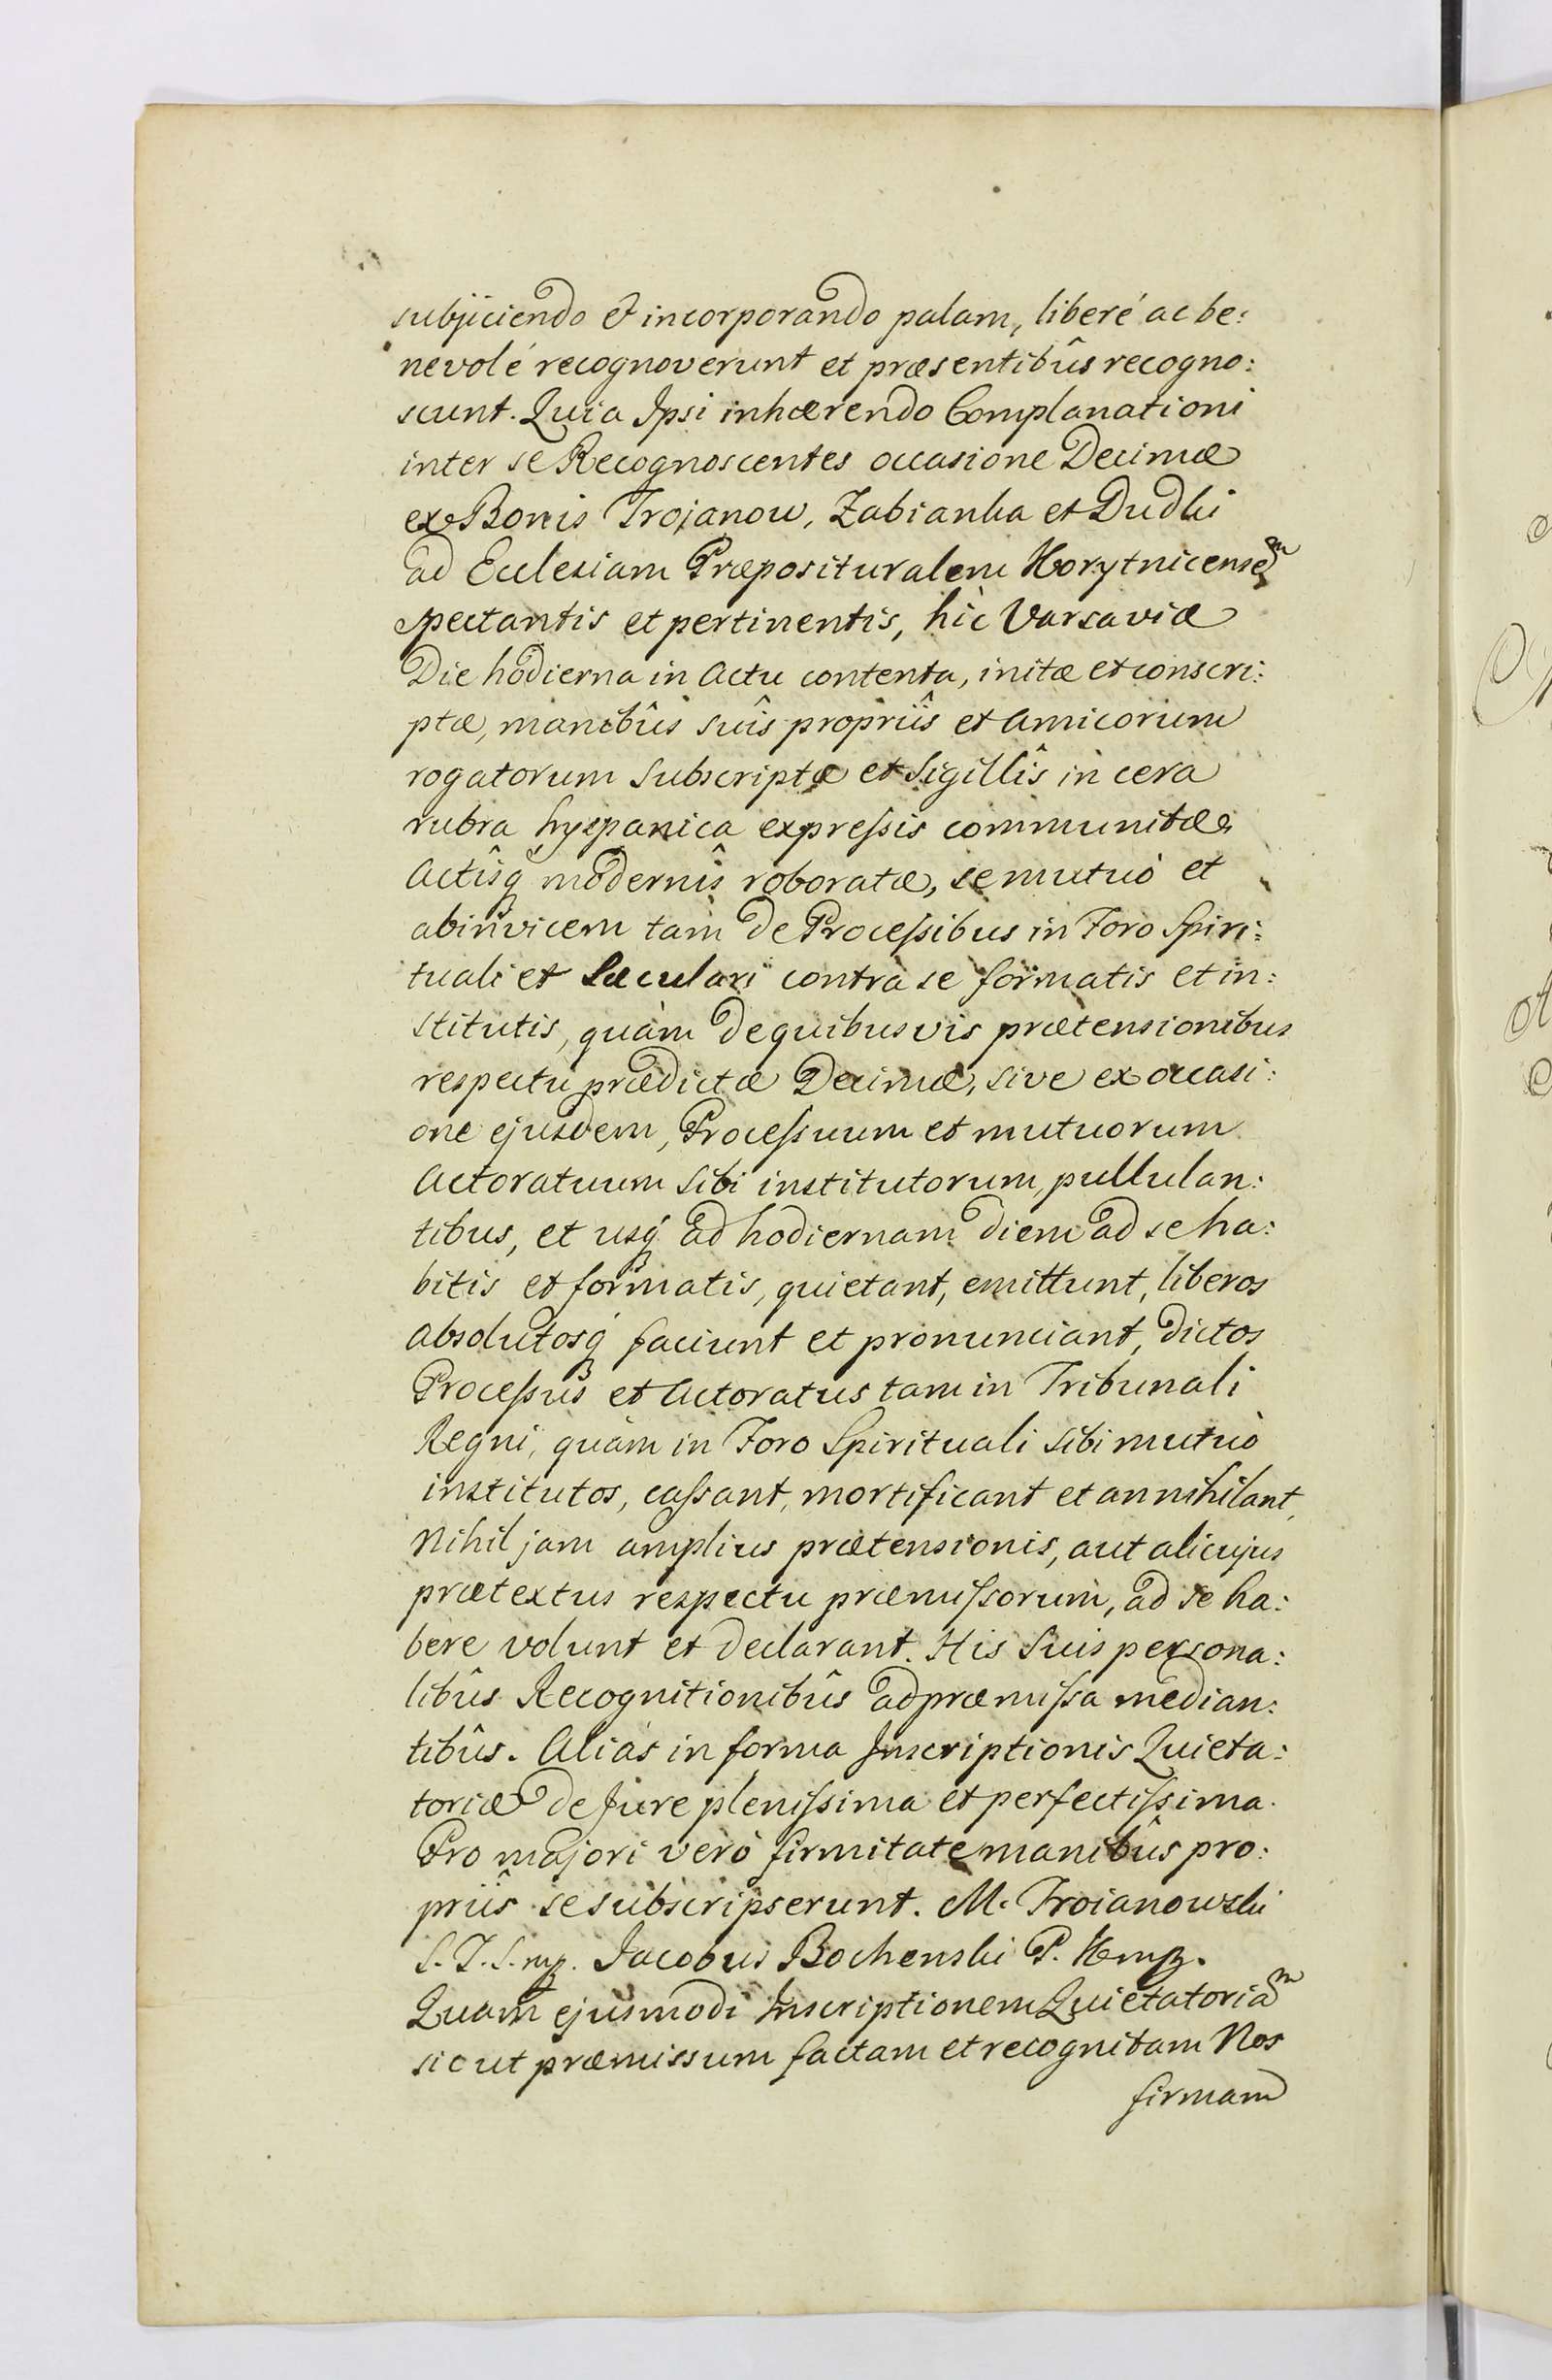 subjiciendo & incorporando palam, liberé ac be:
nevolé recognoverunt et præsentibûs recogno:
scunt. Quia Ipsi inhærendo Complanationi
inter se Recognoscentes occasione Decimæ
ex Bonis Trojanow, Zabianka et Dudki
ad Ecclesiam Præposituralem Korytnicensem
spectantis et pertinentis, hîc Varsaviæ
Die hodierna in Actu contenta, initæ et conscri:
ptæ, manibûs suîs propriîs et Amicorum
rogatorum Subscriptæ et Sigillîs in cera
rubra hyspanica expressis communitæ,
Actîsq modernîs roboratæ, se mutuò et
abinvicem tam de Processibus in Foro Spiri:
tuali et Sæculari contra se formatis et in:
stitutis, quàm de quibusvis prætensionibus
respectu prædictæ Decimæ, sive ex occasi:
one ejusdem, Processuum et mutuorum
Actoratuum Sibi institutorum, pullulan:
tibus, et usq ad hodiernam diem ad se ha:
bitis et formatis, quietant, emittunt, liberos
absolutosq faciunt et pronunciant, dictos
Processus et Actoratus tam in Tribunali
Regni, quàm in Foro Spirituali Sibi mutuò
institutos, cassant, mortificant et annihilant,
Nihil jam amplius prætensionis, aut alicujus
prætextus respectu præmissorum, ad se ha:
bere volunt et declarant. His Suis persona:
libûs Recognitionibûs ad præmissa median:
tibûs. Aliàs in forma Inscriptionis Quieta:
toriæ de Jure plenissima et perfectissima.
Pro majori verò firmitate manibûs pro:
priîs se subscripserunt. M. Troianowski
S. T. S. mp. Jacobus Bochenski P. K mp.
Quam ejusmodi Inscriptionem Quietatoriam
sicut præmissum factam et recognitam Nos
firmam